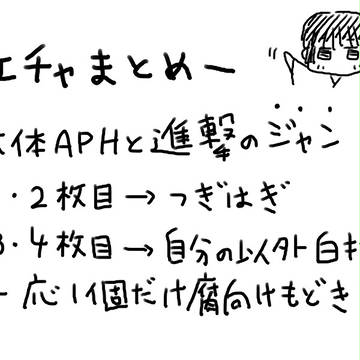 エチャまとめー
体APHと進撃のジャン
・2枚目→つぎはぎ
3・4枚目→自分の以外白
一応1個だけ腐向けもどき